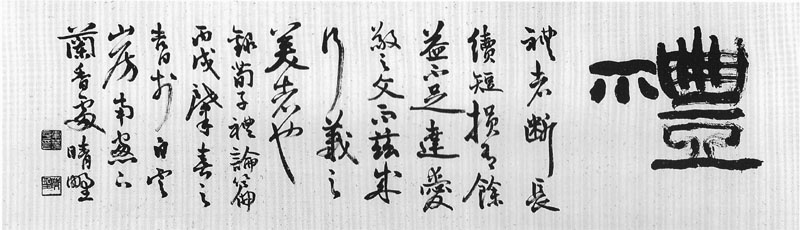 禮
禮者斷長
續短損有餘
益不足達愛
敬之文而玆成
行義之
美者也
錄荀子禮論篇
丙戌肇春之
吉日於白雲
山房南窓下
蘭香處晴